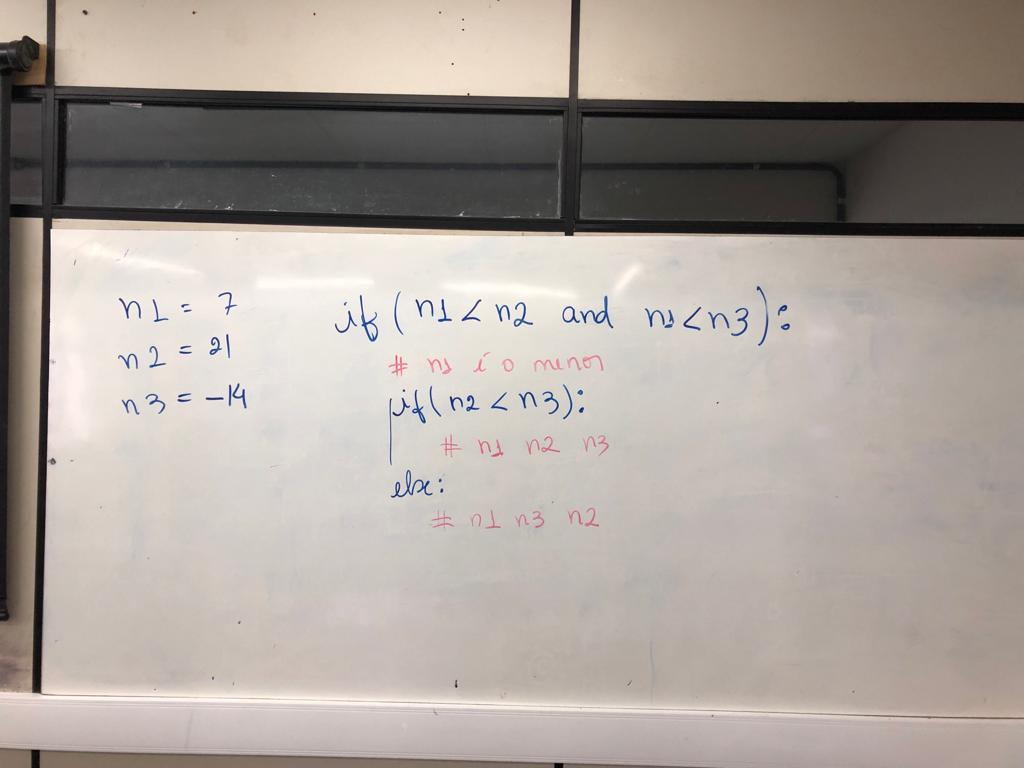 n1 = 7
n2 = 21
n3 = -14
if (n1 < n2 and n1 < n3):
# n1 é o menor
if (n2 < n3):
# n1 n2 n3
else:
# n1 n3 n2